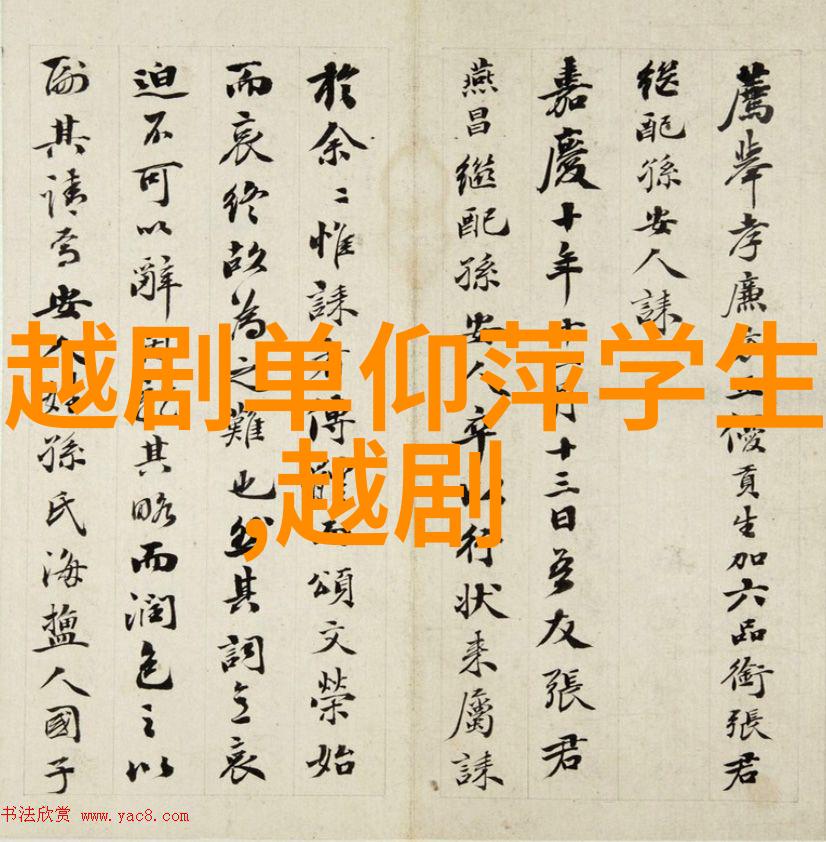 越剧单仰萍学生
,越剧
薦舉孝廉優貢生加六品銜張君
继配孫安人誄
嘉慶十年十月十三日吾友張君
燕昌繼配孫安人卒以行狀来屬誄
於余〻惟誄頌文榮始
而哀終故為之難也然其詞哀
迫不可以辭其略而潤色之以
副其請安人姓孫氏海鹽人國子
书法欣赏 www.yac8.com